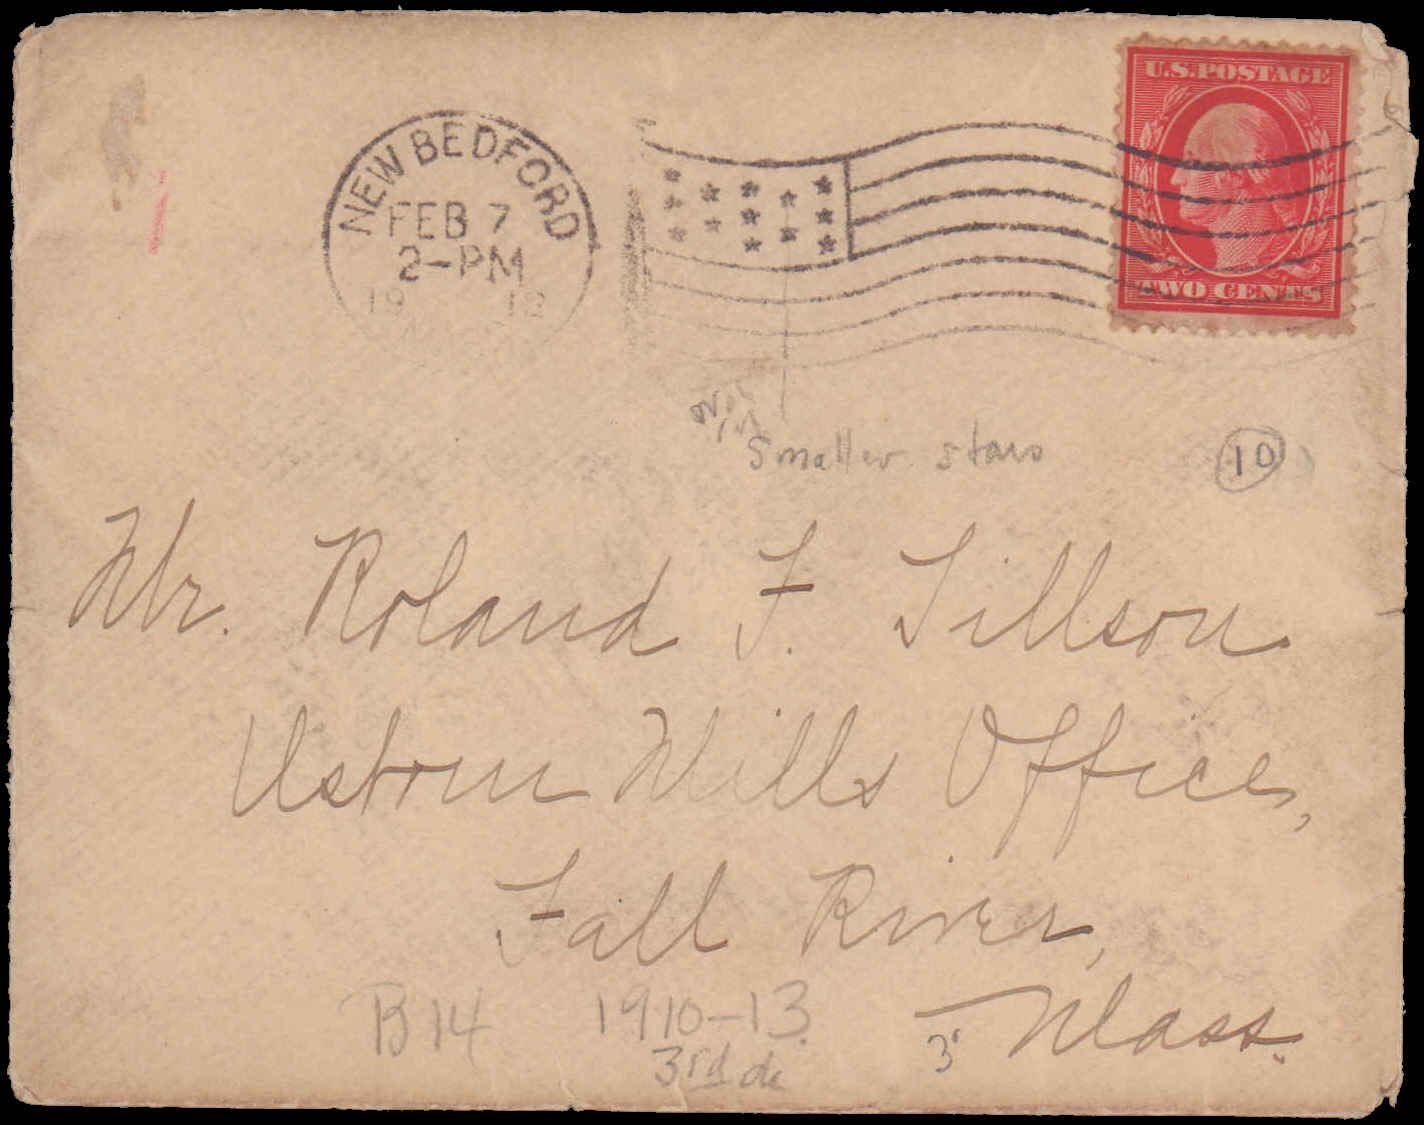 U.S.POSTAGE
NEW BEDFORD
FEB 7
2-PM
19 12
TWO CENTS
Smaller stars
10
Mr. Roland F. Tillson
Osborn Mills Office,
Fall River,
Mass.
B14 1910-13
3rd die
3